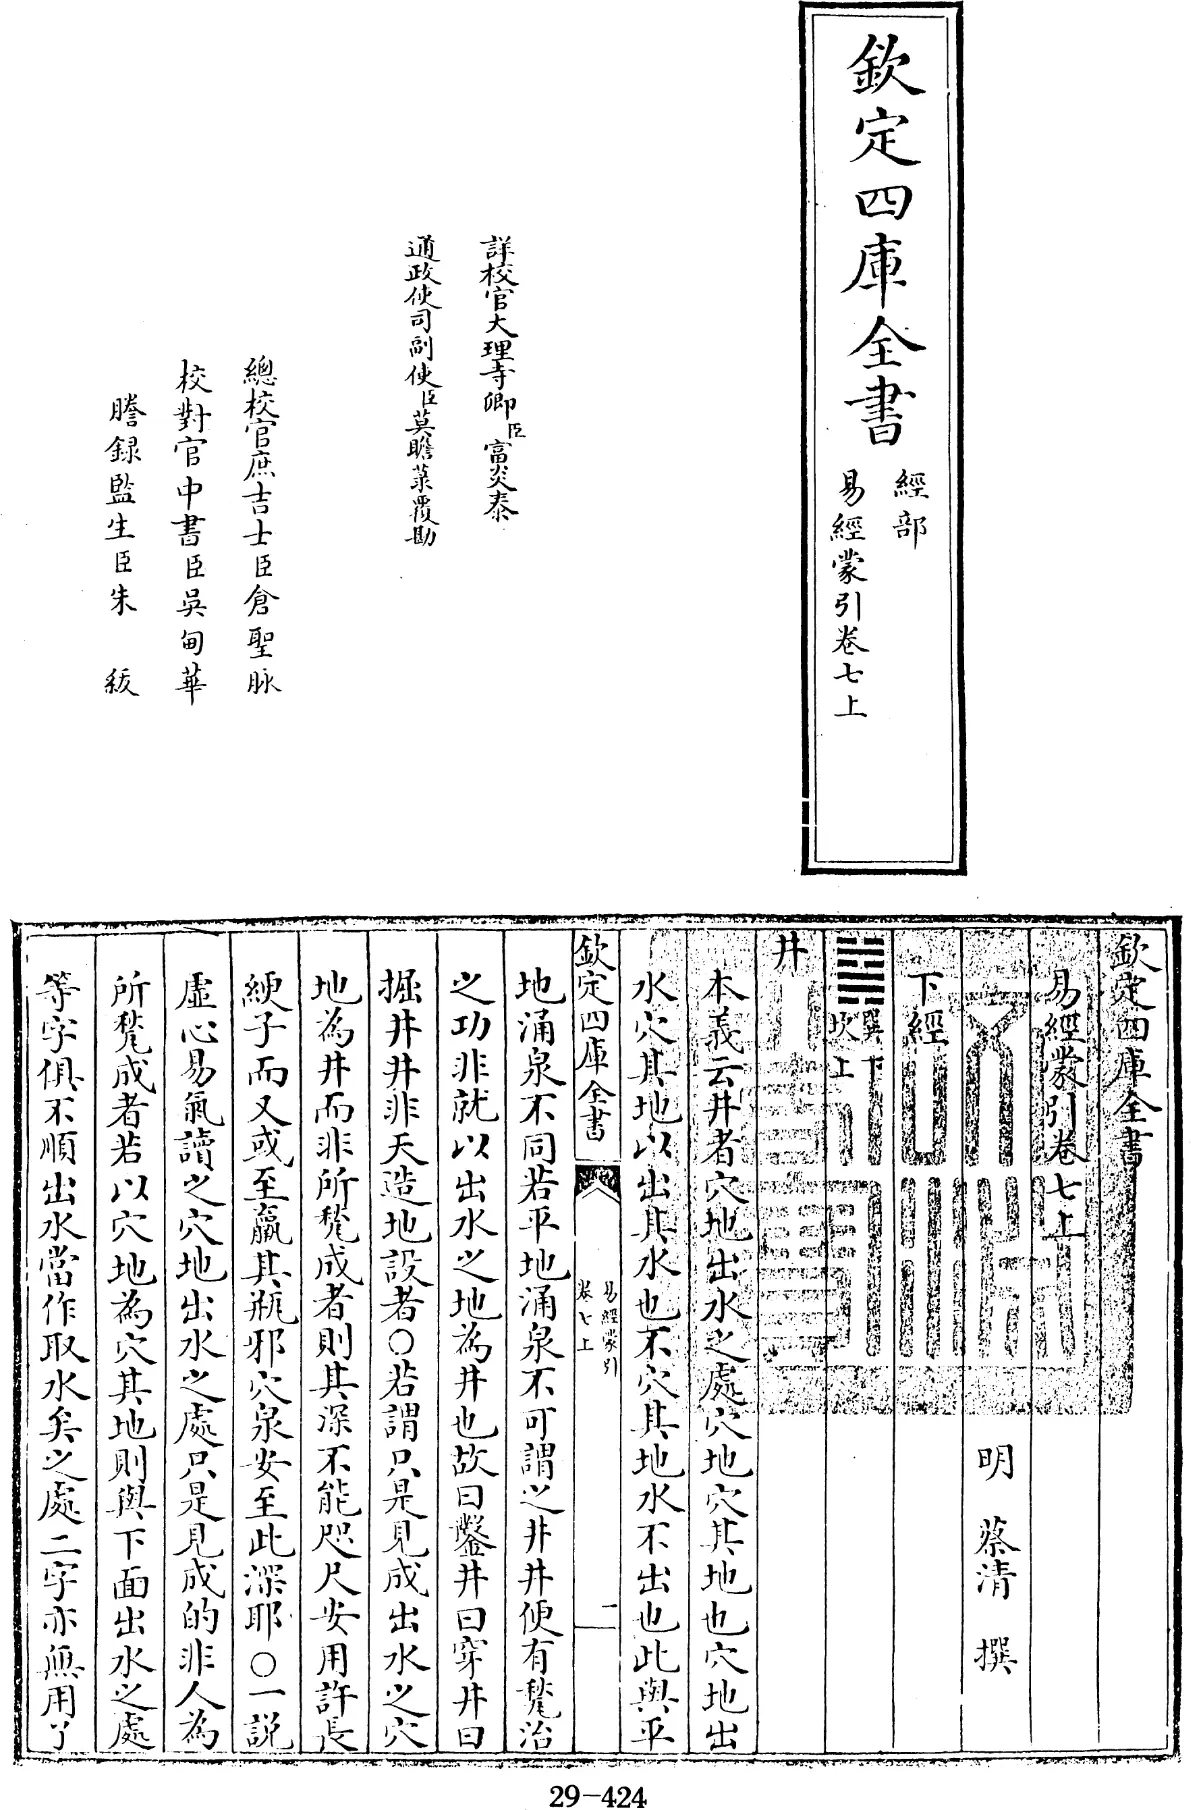 欽定四庫全書
經部
易經蒙引卷七上
詳校官大理寺卿臣富炎泰
通政使司副使臣莫瞻菉覆勘
總校官庶吉士臣倉聖脉
校對官中書臣吳甸華
謄録監生臣朱　紱
欽定四庫全書
易經蒙引卷七上
明　蔡清　撰
下經
䷯巽下
坎上
井
本義云井者穴地出水之處穴地穴其地也穴地出
水穴其地以出其水也不穴其地水不出也此與平
欽定四庫全書
易經蒙引
卷七上
一
地涌泉不同若平地涌泉不可謂之井井便有甃治
之功非就以出水之地為井也故曰鑿井曰穿井曰
掘井井非天造地設者○若謂只是見成出水之穴
地為井而非所甃成者則其深不能咫尺安用許長
綆子而又或至羸其瓶邪穴泉安至此深耶○一説
虛心易氣讀之穴地出水之處只是見成的非人為
所甃成者若以穴地為穴其地則與下面出水之處
等字俱不順出水當作取水矣之處二字亦無用了
29-424